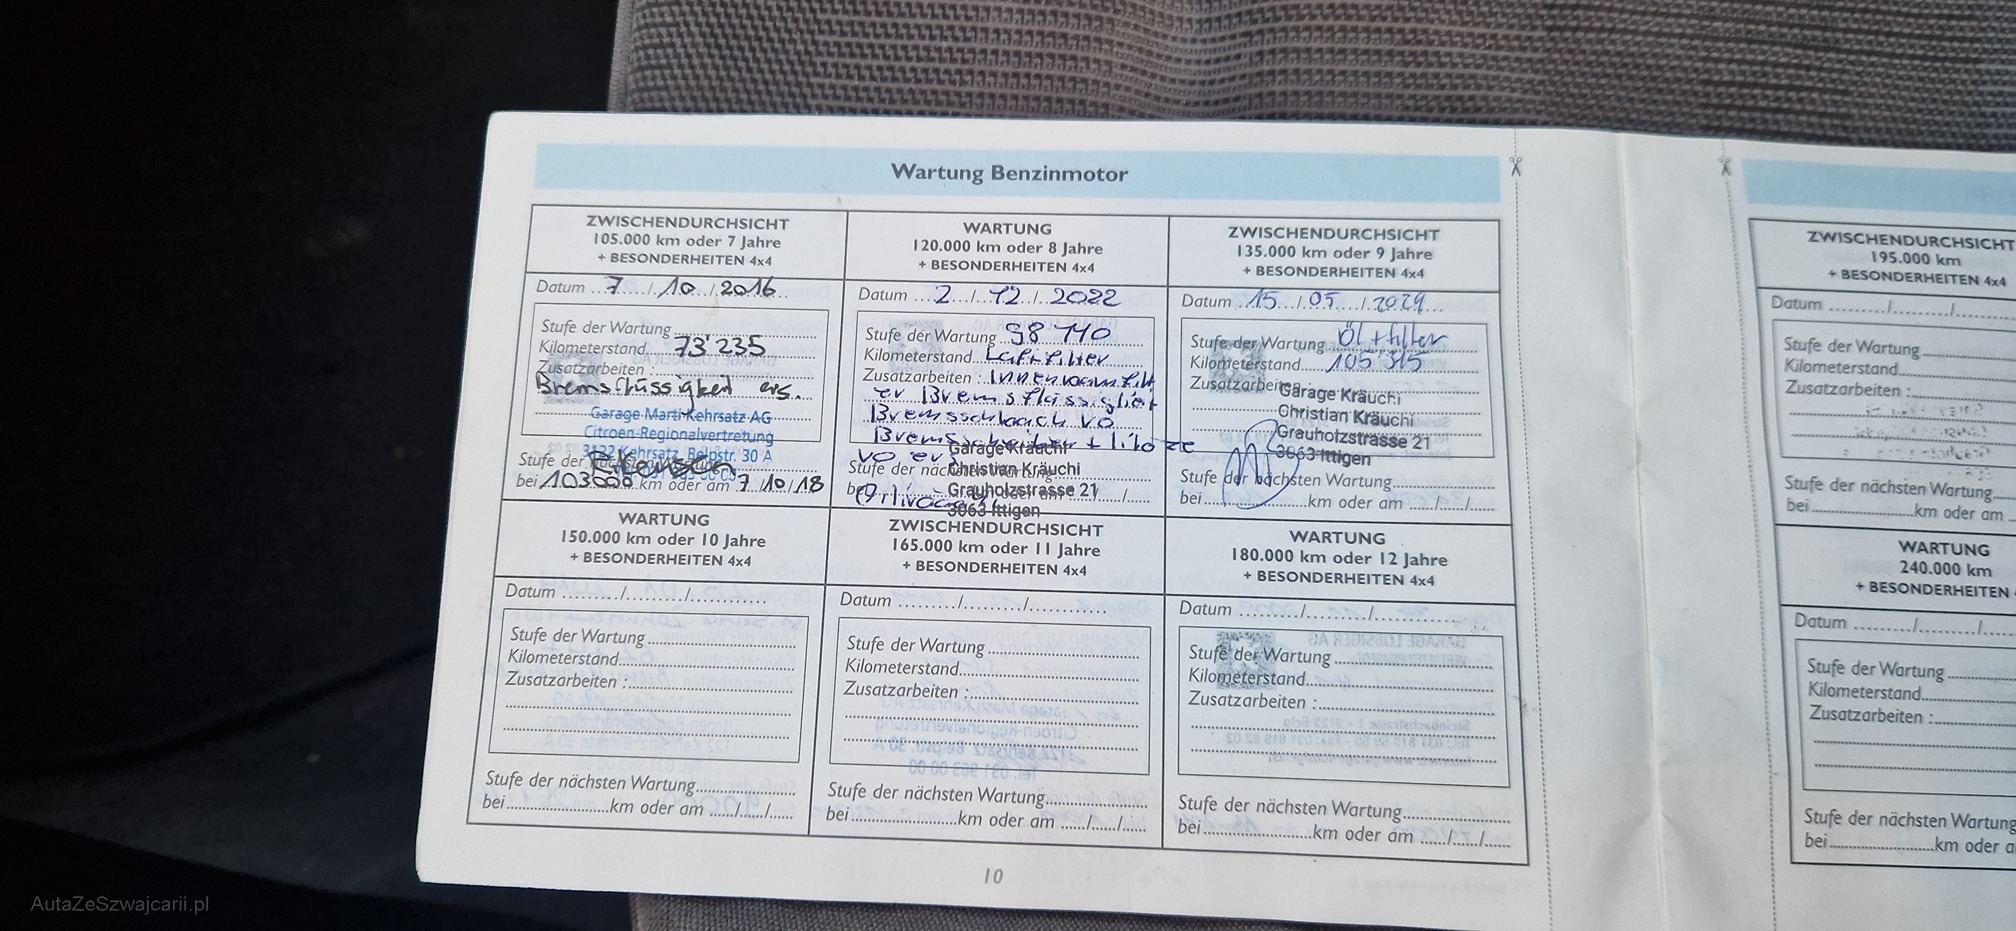 Wartung Benzinmotor
ZWISCHENDURCHSICHT
105.000 km oder 7 Jahre
+ BESONDERHEITEN 4x4
Datum 7 / 10 / 2016
Stufe der Wartung
Kilometerstand 73'235
Zusatzarbeiten :
Bremsflüssigkeit ers.
Garage Marti Kehrsatz AG
Citroen-Regionalvertretung
3122 Kehrsatz, Belpstr. 30 A
Stufe der
bei 103000 km oder am 7/10/18
WARTUNG
120.000 km oder 8 Jahre
+ BESONDERHEITEN 4x4
Datum 2 / 12 / 2022
Stufe der Wartung 98 110
Kilometerstand Luftfilter
Zusatzarbeiten : Innenraumfilt
er Bremsflüssigkeit
Bremsschlauch vo
Bremsscheiben + Klötze
vo er
Garage Kräuchi
Stufe der näc
Christian Kräuchi
Grauholzstrasse 21
3063 Ittigen
ZWISCHENDURCHSICHT
135.000 km oder 9 Jahre
+ BESONDERHEITEN 4x4
Datum 15 / 05 / 2024
Stufe der Wartung Öl + filter
Kilometerstand 105 315
Zusatzarbeiten
Garage Kräuchi
Christian Kräuchi
Grauholzstrasse 21
3063 Ittigen
Stufe der nächsten Wartung
bei km oder am / /
WARTUNG
150.000 km oder 10 Jahre
+ BESONDERHEITEN 4x4
Datum / /
Stufe der Wartung
Kilometerstand
Zusatzarbeiten :
Stufe der nächsten Wartung
bei km oder am / /
ZWISCHENDURCHSICHT
165.000 km oder 11 Jahre
+ BESONDERHEITEN 4x4
Datum / /
Stufe der Wartung
Kilometerstand
Zusatzarbeiten :
Stufe der nächsten Wartung
bei km oder am / /
WARTUNG
180.000 km oder 12 Jahre
+ BESONDERHEITEN 4x4
Datum / /
Stufe der Wartung
Kilometerstand
Zusatzarbeiten :
Stufe der nächsten Wartung
bei km oder am / /
10
ZWISCHENDURCHSICHT
195.000 km
+ BESONDERHEITEN 4x4
Datum / /
Stufe der Wartung
Kilometerstand
Zusatzarbeiten :
Stufe der nächsten Wartung
bei km oder am
WARTUNG
240.000 km
+ BESONDERHEITEN
Datum / /
Stufe der Wartung
Kilometerstand
Zusatzarbeiten :
Stufe der nächsten Wartung
bei km oder a
AutaZeSzwajcarii.pl